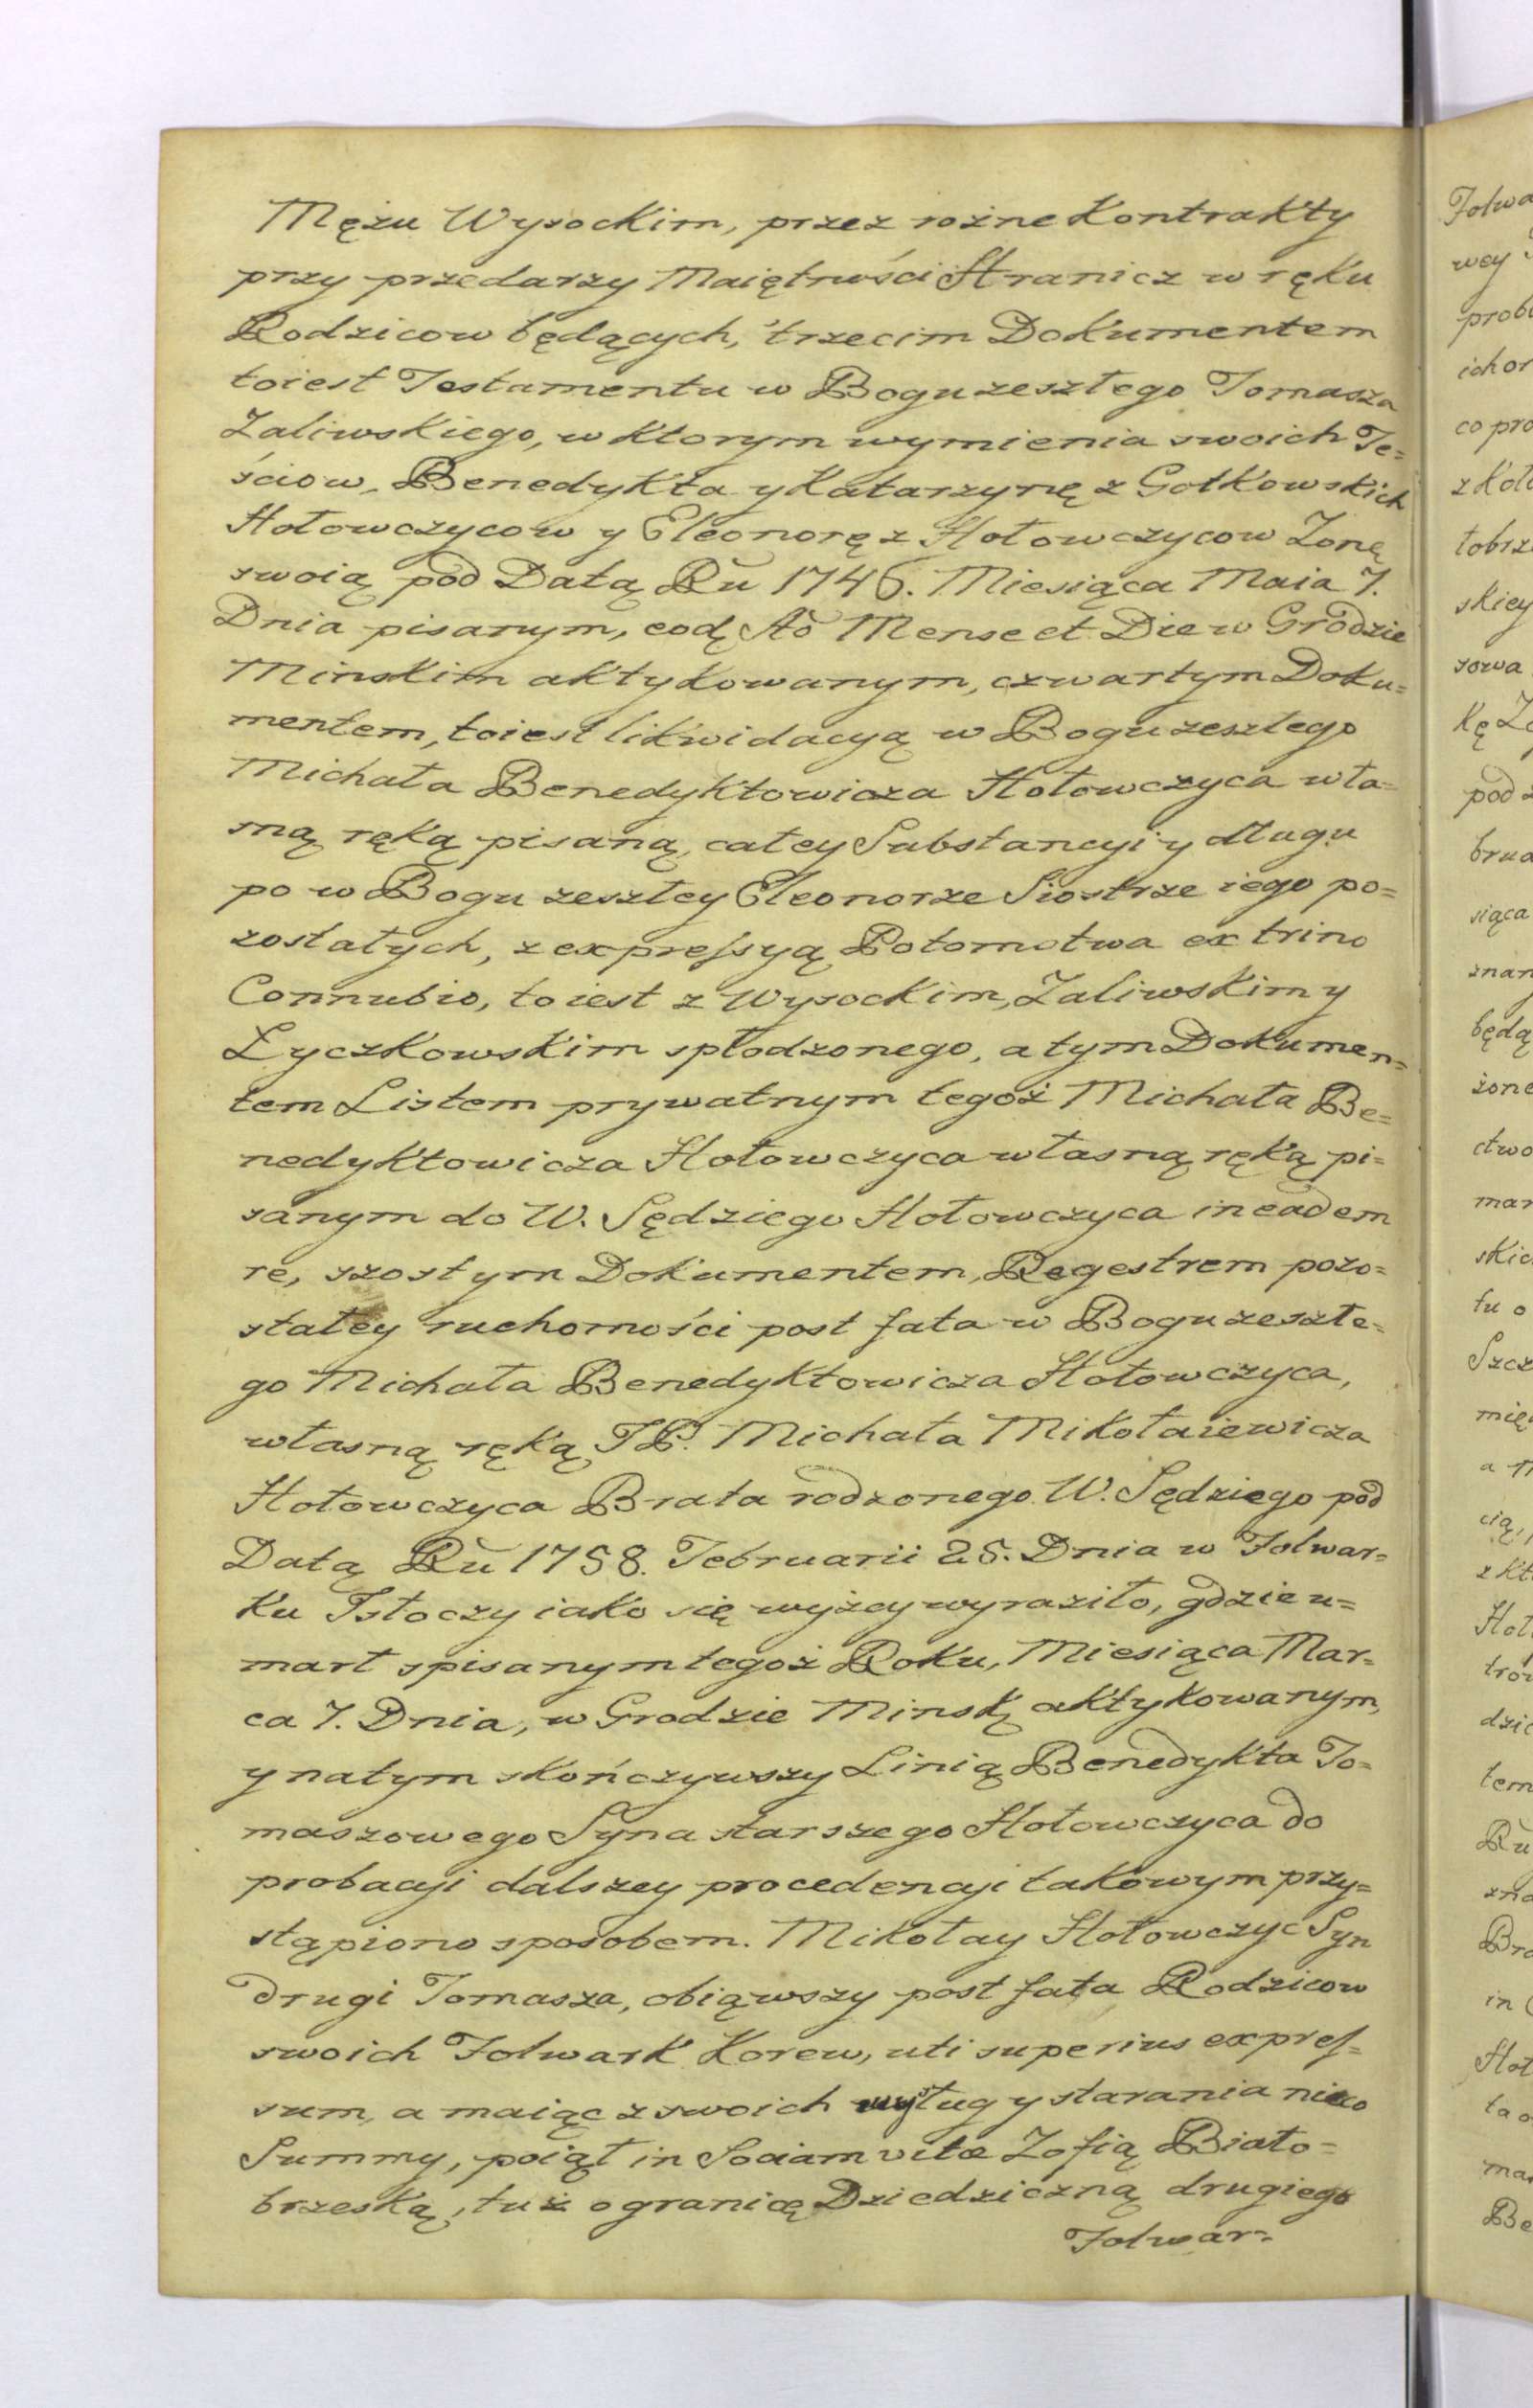 Mężu Wysockim, przez rożne Kontrakty
przy przedarzy Maiętności Hranicz w ręku
Rodzicow będących, trzecim Dokumentem
toiest Testamentu w Bogu zeszłego Tomasza
Zaliwskiego, w ktorym wymienia swoich Te=
ściow, Benedykta y Katarzynę z Gołkowskich
Hołowczycow y Eleonorę z Hołowczycow Zonę
swoią pod Datą Ru 1746. Miesiąca Maia 7.
Dnia pisanym, eodę Ao Mense et Die w Grodzie
Minskim aktykowanym, czwartym Doku=
mentem, toiest likwidacyą w Bogu zeszłego
Michała Benedyktowicza Hołowczyca wła=
sną ręką pisaną, całey Substancyi y długu
po w Bogu zeszłey Eleonorze Siostrze iego po=
zostałych, z expressyą Potomstwa ex trino
Connubio, toiest z Wysockim, Zaliwskim y
Łyczkowskim spłodzonego, a tym Dokumen=
tem Listem prywatnym tegoż Michała Be=
nedyktowicza Hołowczyca własną ręką pi=
sanym do W. Sędziego Hołowczyca in eadem
re, szostym Dokumentem, Regestrem pozo=
stałey ruchomości post fata w Bogu zeszłe=
go Michała Benedyktowicza Hołowczyca,
własną ręką JP. Michała Mikołaiewicza
Hołowczyca Brata rodzonego W. Sędziego pod
Datą Ru 1758. Februarii 25. Dnia w Folwar=
ku Istoczy iako się wyżey wyraziło, gdzie u=
marł spisanym tegoż Roku, Miesiąca Mar=
ca 7. Dnia, w Grodzie Minsk aktykowanym,
y na tym skończywszy Linią Benedykta To=
maszowego Syna starszego Hołowczyca do
probacyi dalszey procedencyi takowym przy=
stąpiono sposobem. Mikołay Hołowczyc Syn
drugi Tomasza, obiąwszy post fata Rodzicow
swoich Folwark Korew, uti superius expres=
sum, a maiąc z swoich wysług y starania nieco
Summy, poiął in Sociam vitæ Zofią Biało=
brzeską, tuż o granicę Dziedziczną drugiego
Folwar=